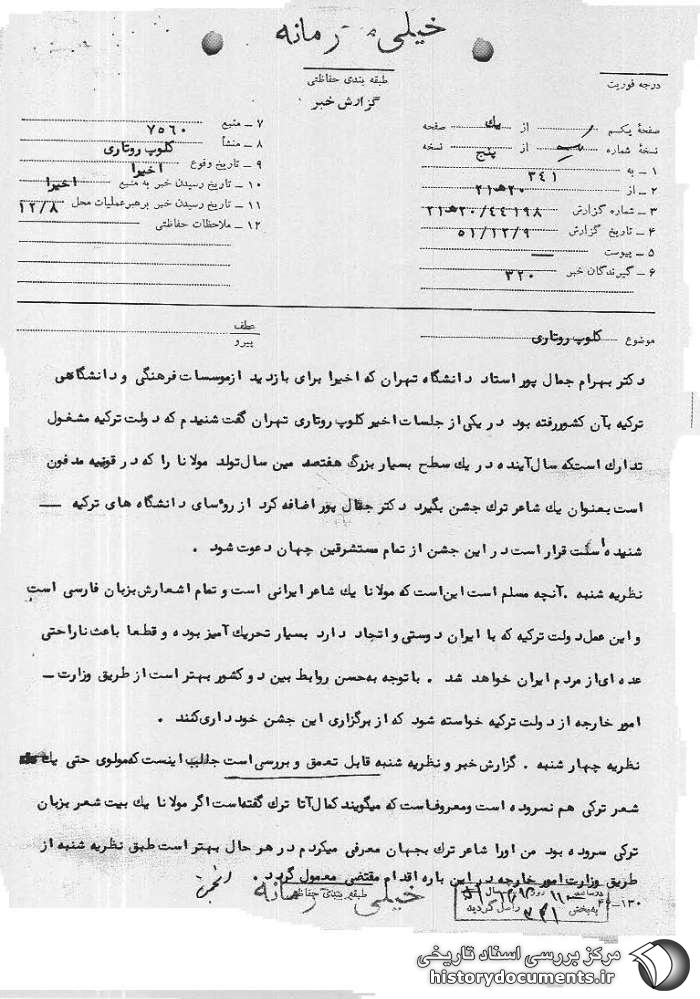 خیلی محرمانه
طبقه بندی حفاظتی
گزارش خبر
درجه فوریت
صفحهٔ یکم از یك صفحه
نسخهٔ شماره از پنج نسخه
۱ – به ۳۴۱
۲ – از ۲۰ ه‍ ۲۱
۳ – شماره گزارش ۲۰/۴۴۱۹۸ ه‍ ۲۱
۴ – تاریخ گزارش ۵۱/۱۲/۹
۵ – پیوست —
۶ – گیرندگان خبر ۳۲۰
۷ – منبع ۷۵۶۰
۸ – منشأ کلوپ روتاری
۹ – تاریخ وقوع اخیرا
۱۰ – تاریخ رسیدن خبر به منبع اخیرا
۱۱ – تاریخ رسیدن خبر برهبرعملیات محل ۱۲/۸
۱۲ – ملاحظات حفاظتی
موضوع کلوپ روتاری
عطف
پیرو
دکتر بهرام جمال پور استاد دانشگاه تهران که اخیرا برای بازدید ازموسسات فرهنگی و دانشگاهی
ترکیه بآن کشوررفته بود در یکی از جلسات اخیر کلوپ روتاری تهران گفت شنیدم که دولت ترکیه مشغول
تدارك استکه سال آینده در یك سطح بسیار بزرگ هفتصد مین سال تولد مولانا را که در قونیه مدفون
است بعنوان یك شاعر ترك جشن بگیرد دکتر جمال پور اضافه کرد از روٴسای دانشگاه های ترکیه —
شنیده است قرار است در این جشن از تمام مستشرقین جهان دعوت شود .
نظریه شنبه . آنچه مسلم است این است که مولانا یك شاعر ایرانی است و تمام اشعارش بزبان فارسی است
و این عمل دولت ترکیه که با ایران دوستی و اتحاد دارد بسیار تحریك آمیز بوده و قطعا باعث ناراحتی
عده ای از مردم ایران خواهد شد . با توجه به حسن روابط بین دو کشور بهتر است از طریق وزارت —
امور خارجه از دولت ترکیه خواسته شود که از برگزاری این جشن خود داری کنند .
نظریه چهار شنبه . گزارش خبر و نظریه شنبه قابل تعمق و بررسی است جالب اینست که مولوی حتی یك
شعر ترکی هم نسروده است ومعروف است که میگویند کمال آتا ترك گفته است اگر مولانا یك بیت شعر بزبان
ترکی سروده بود من اورا شاعر ترك بجهان معرفی میکردم در هر حال بهتر است طبق نظریه شنبه از
طریق وزارت امور خارجه در این باره اقدام مقتضی معمول گردد .
طبقه بندی حفاظتی
خیلی محرمانه
در ساعت روز سال
به بخش ۳۴۱ واصل گردید
۴۶–۱۳۰
مرکز بررسی اسناد تاریخی
historydocuments.ir